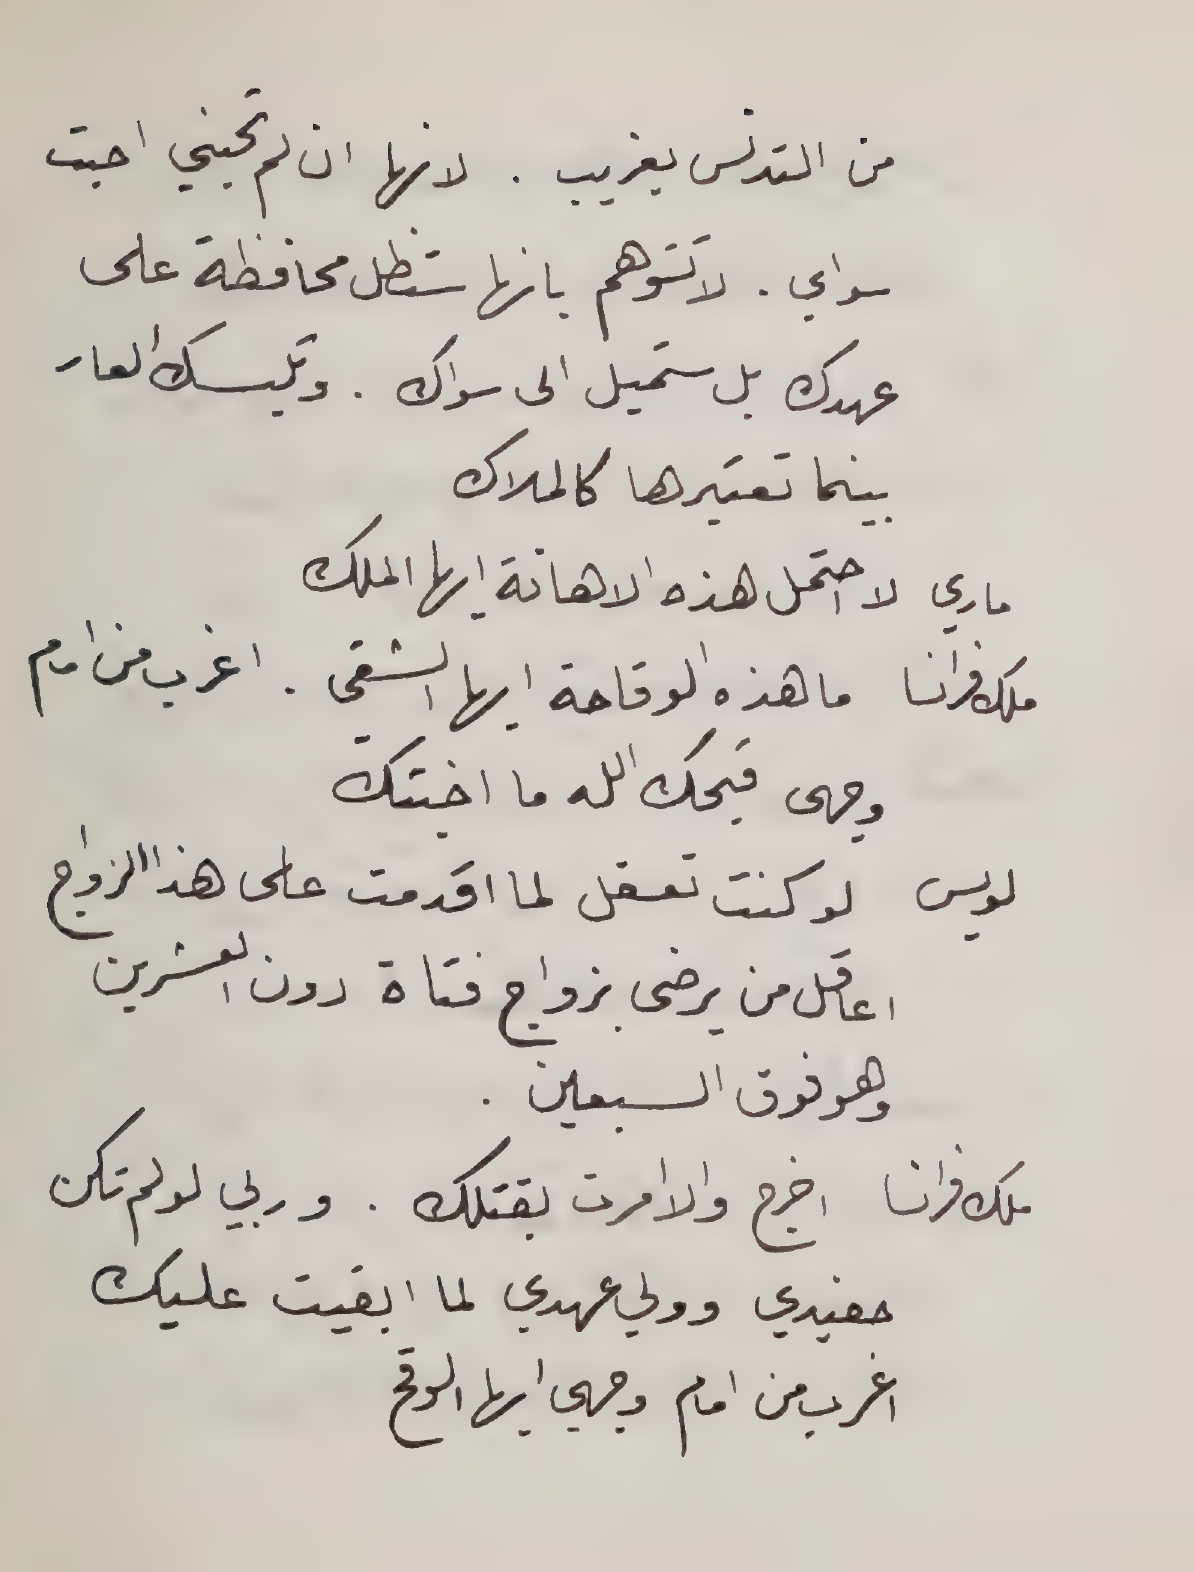 من التدنس بغريب . لانها ان لم تحبني احبت
سواي . لا تتوهم بانها ستظل محافظة على
عهدك بل ستميل الى سواك . وتلبسك العار
بينما تعتبرها كالملاك
ماري لا احتمل هذه الاهانة ايها الملك
ملك فرانسا ما هذه الوقاحة ايها الشقي . اغرب من امام
وجهي قبحك الله ما اخبثك
لويس لو كنت تعقل لما اقدمت على هذا الزواج
اعاقل من يرضى بزواج فتاة دون العشرين
وهو فوق السبعين .
ملك فرانسا اخرج والا امرت بقتلك . وربي لو لم تكن
حفيدي وولي عهدي لما ابقيت عليك
اغرب من امام وجهي ايها الوقح